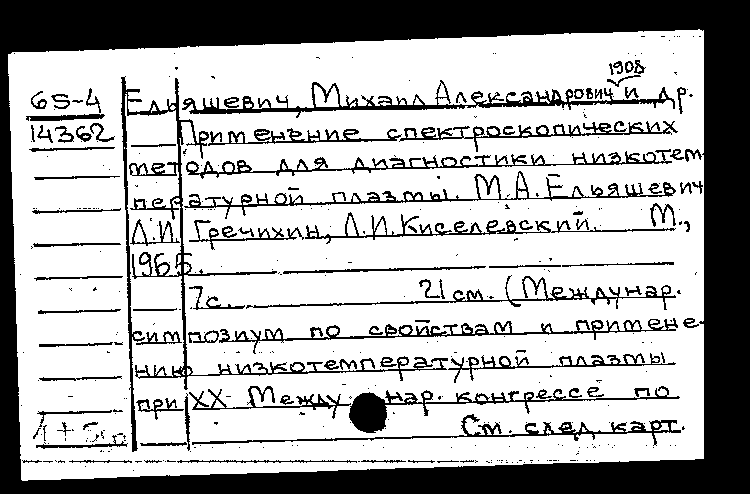 1908
65-4 Ельяшевич, Михаил Александрович и др.
14362 Применение спектроскопических
методов для диагностики низкотем-
пературной плазмы. М.А. Ельяшевич
Л.И. Гречихин, Л.И. Киселевский. М.,
1965.
7с. 21 см. (Междунар.
симпозиум по свойствам и примене-
нию низкотемпературной плазмы
при XX Междунар. конгрессе по
См. след. карт.